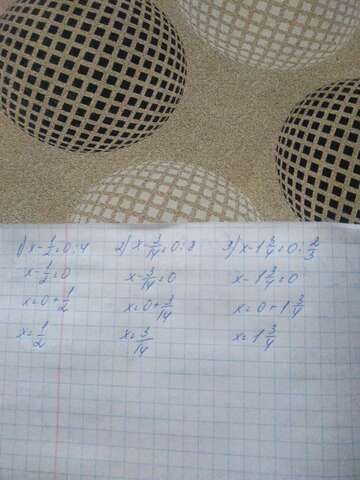 1) x-1/2=0:4
x-1/2=0
x=0+1/2
x=1/2
2) x-3/14=0:8
x-3/14=0
x=0+3/14
x=3/14
3) x-1 3/4=0:2/3
x-1 3/4=0
x=0+1 3/4
x=1 3/4